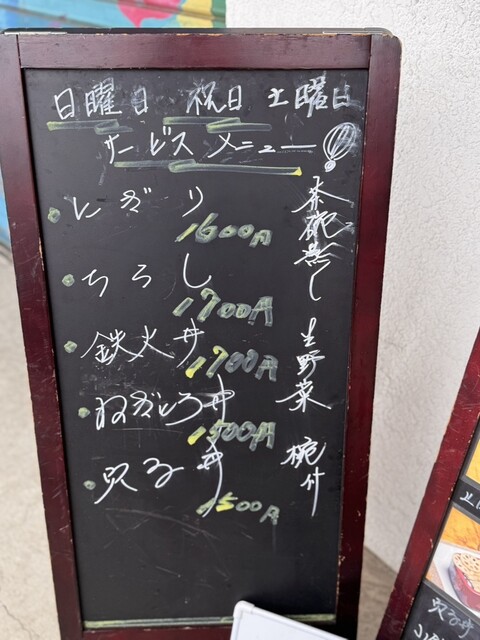 日曜日 祝日 土曜日
サービスメニュー!
・にぎり
1600円
・ちらし
1700円
・鉄火丼
1700円
・ねぎとろ丼
1500円
・穴子丼
1500円
茶碗蒸し
生野菜
椀付
穴子丼